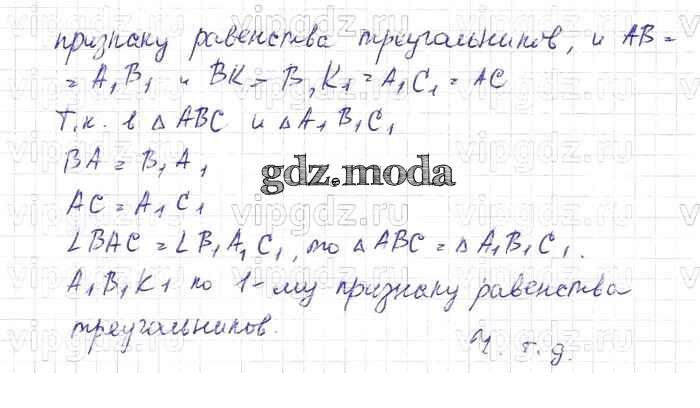 признаку равенства треугольников, и AB =
= A₁B₁ и BK = B₁K₁ = A₁C₁ = AC
Т.к. в △ ABC и △ A₁B₁C₁
BA = B₁A₁
gdz.moda
AC = A₁C₁
∠BAC = ∠B₁A₁C₁, то △ ABC = △ A₁B₁C₁.
A₁B₁K₁ по 1-му признаку равенства
треугольников.
Ч. т. д.
vipgdz.ru